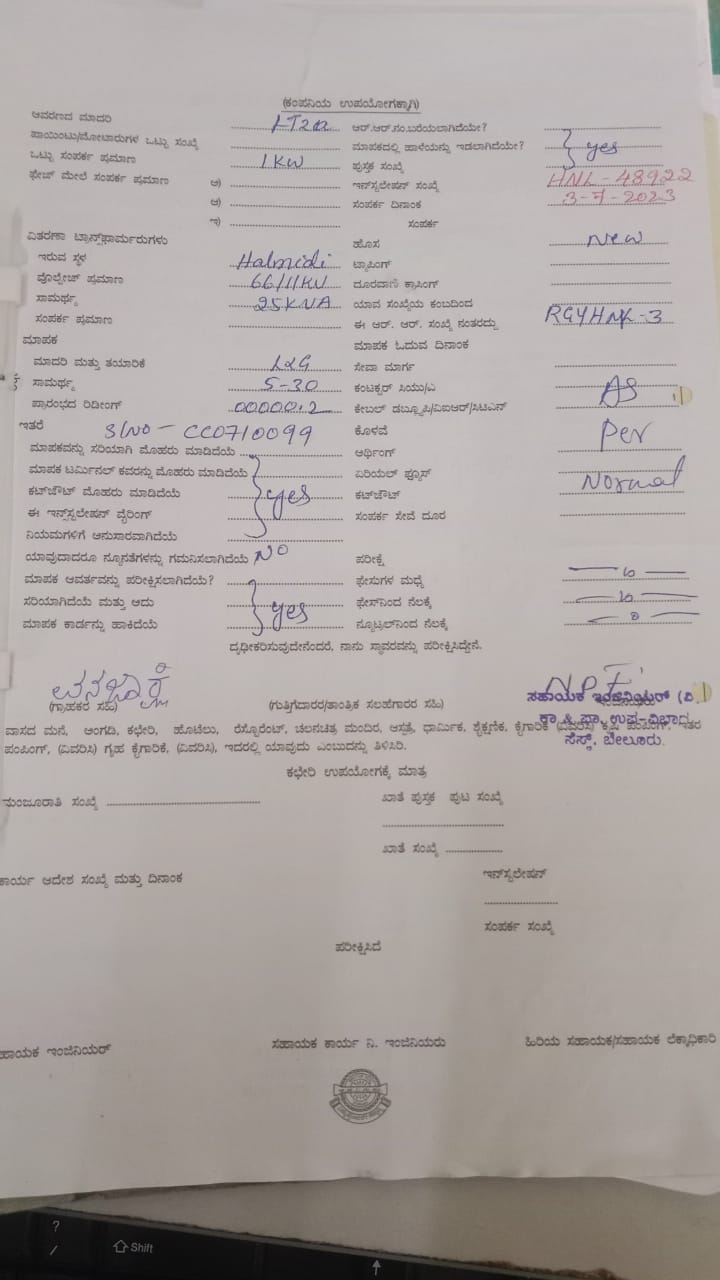 (ಕಂಪನಿಯ ಉಪಯೋಗಕ್ಕಾಗಿ)
ಆವರಣದ ಮಾದರಿ LT2a ಆರ್.ಆರ್.ನಂ.ಬರೆಯಲಾಗಿದೆಯೇ?
ಪಾಯಿಂಟು/ಮೋಟಾರುಗಳ ಒಟ್ಟು ಸಂಖ್ಯೆ ಮಾಪಕದಲ್ಲಿ ಹಾಳೆಯನ್ನು ಇಡಲಾಗಿದೆಯೇ? yes
ಒಟ್ಟು ಸಂಪರ್ಕ ಪ್ರಮಾಣ 1KW ಪುಸ್ತಕ ಸಂಖ್ಯೆ
ಫೇಜ್ ಮೇಲೆ ಸಂಪರ್ಕ ಪ್ರಮಾಣ ಅ) ಇನ್‌ಸ್ಟಲೇಷನ್ ಸಂಖ್ಯೆ HNL-48922
ಆ) ಸಂಪರ್ಕ ದಿನಾಂಕ 3-7-2023
ಇ) ಸಂಪರ್ಕ
ವಿತರಣಾ ಟ್ರಾನ್ಸ್‌ಫಾರ್ಮರುಗಳು ಹೊಸ New
ಇರುವ ಸ್ಥಳ Halmidi ಟ್ಯಾಪಿಂಗ್
ವೊಲ್ಟೇಜ್ ಪ್ರಮಾಣ 66/11KV ದೂರವಾಣಿ ಕ್ರಾಸಿಂಗ್
ಸಾಮರ್ಥ್ಯ 25KVA ಯಾವ ಸಂಖ್ಯೆಯ ಕಂಬದಿಂದ
ಸಂಪರ್ಕ ಪ್ರಮಾಣ ಈ ಆರ್. ಆರ್. ಸಂಖ್ಯೆ ನಂತರದ್ದು RGYHNL-3
ಮಾಪಕ ಮಾಪಕ ಓದುವ ದಿನಾಂಕ
ಮಾದರಿ ಮತ್ತು ತಯಾರಿಕೆ L&G ಸೇವಾ ಮಾರ್ಗ
ಸಾಮರ್ಥ್ಯ 5-30 ಕಂಟಕ್ಟರ್ ಸಿಯು/ಎ AS
ಪ್ರಾರಂಭದ ರಿಡಿಂಗ್ 00000.2 ಕೇಬಲ್ ಡಬ್ಲ್ಯೂಪಿ/ವಿಐಆರ್/ಸಿಟಿಎಸ್
ಇತರೆ S/NO- CC0710099 ಕೊಳವೆ Per
ಮಾಪಕವನ್ನು ಸರಿಯಾಗಿ ಮೊಹರು ಮಾಡಿದೆಯೆ ಅರ್ಥಿಂಗ್
ಮಾಪಕ ಟರ್ಮಿನಲ್ ಕವರನ್ನು ಮೊಹರು ಮಾಡಿದೆಯೆ ಏರಿಯಲ್ ಫ್ಯೂಸ್ Normal
ಕಟ್‌ಔಟ್ ಮೊಹರು ಮಾಡಿದೆಯೆ yes ಕಟ್‌ಔಟ್
ಈ ಇನ್‌ಸ್ಟಲೇಷನ್ ವೈರಿಂಗ್ ಸಂಪರ್ಕ ಸೇವೆ ದೂರ
ನಿಯಮಗಳಿಗೆ ಅನುಸಾರವಾಗಿದೆಯೆ
ಯಾವುದಾದರೂ ನ್ಯೂನತೆಗಳನ್ನು ಗಮನಿಸಲಾಗಿದೆಯೆ NO ಪರೀಕ್ಷೆ
ಮಾಪಕ ಆವರ್ತವನ್ನು ಪರೀಕ್ಷಿಸಲಾಗಿದೆಯೆ? ಫೇಸುಗಳ ಮಧ್ಯೆ
ಸರಿಯಾಗಿದೆಯೆ ಮತ್ತು ಅದು yes ಫೇಸ್‌ನಿಂದ ನೆಲಕ್ಕೆ
ಮಾಪಕ ಕಾರ್ಡನ್ನು ಹಾಕಿದೆಯೆ ನ್ಯೂಟ್ರಲ್‌ನಿಂದ ನೆಲಕ್ಕೆ
ದೃಢೀಕರಿಸುವುದೇನೆಂದರೆ, ನಾನು ಸ್ಥಾವರವನ್ನು ಪರೀಕ್ಷಿಸಿದ್ದೇನೆ.
(ಗ್ರಾಹಕರ ಸಹಿ) (ಗುತ್ತಿಗೆದಾರರ/ತಾಂತ್ರಿಕ ಸಲಹೆಗಾರರ ಸಹಿ) ಸಹಾಯಕ ಇಂಜಿನಿಯರ್ (ವಿ.)
ವಾಸದ ಮನೆ, ಅಂಗಡಿ, ಕಛೇರಿ, ಹೊಟೆಲು, ರೆಸ್ಟೊರೆಂಟ್, ಚಲನಚಿತ್ರ ಮಂದಿರ, ಆಸ್ಪತ್ರೆ, ಧಾರ್ಮಿಕ, ಶೈಕ್ಷಣಿಕ, ಕೈಗಾರಿಕೆ (ವಿವರಿಸಿ) ಕೃಷಿ ಪಂಪಿಂಗ್, ಇತರ
ಪಂಪಿಂಗ್, (ವಿವರಿಸಿ) ಗೃಹ ಕೈಗಾರಿಕೆ, (ವಿವರಿಸಿ), ಇದರಲ್ಲಿ ಯಾವುದು ಎಂಬುದನ್ನು ತಿಳಿಸಿರಿ. ಸೆಸ್ಕ್, ಬೇಲೂರು.
ಕಛೇರಿ ಉಪಯೋಗಕ್ಕೆ ಮಾತ್ರ
ಮಂಜೂರಾತಿ ಸಂಖ್ಯೆ ಖಾತೆ ಪುಸ್ತಕ ಪುಟ ಸಂಖ್ಯೆ
ಖಾತೆ ಸಂಖ್ಯೆ
ಕಾರ್ಯ ಆದೇಶ ಸಂಖ್ಯೆ ಮತ್ತು ದಿನಾಂಕ ಇನ್‌ಸ್ಟಲೇಷನ್
ಸಂಪರ್ಕ ಸಂಖ್ಯೆ
ಪರೀಕ್ಷಿಸಿದೆ
ಹಾಯಕ ಇಂಜಿನಿಯರ್ ಸಹಾಯಕ ಕಾರ್ಯ ನಿ. ಇಂಜಿನಿಯರು ಹಿರಿಯ ಸಹಾಯಕ/ಸಹಾಯಕ ಲೆಕ್ಕಾಧಿಕಾರಿ
?
/ Shift